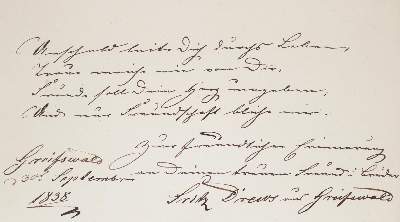 Unschuld leite Dich durchs Leben,
Treue weiche nie von Dir,
Freude soll Dein Herz umgeben,
Und nur Freundschaft bleibe mir.
Zur freundlichen Erinnerung
an Deinen treuen Freund
Fritz Drews aus Greifswald
Greifswald
30 September
1838.